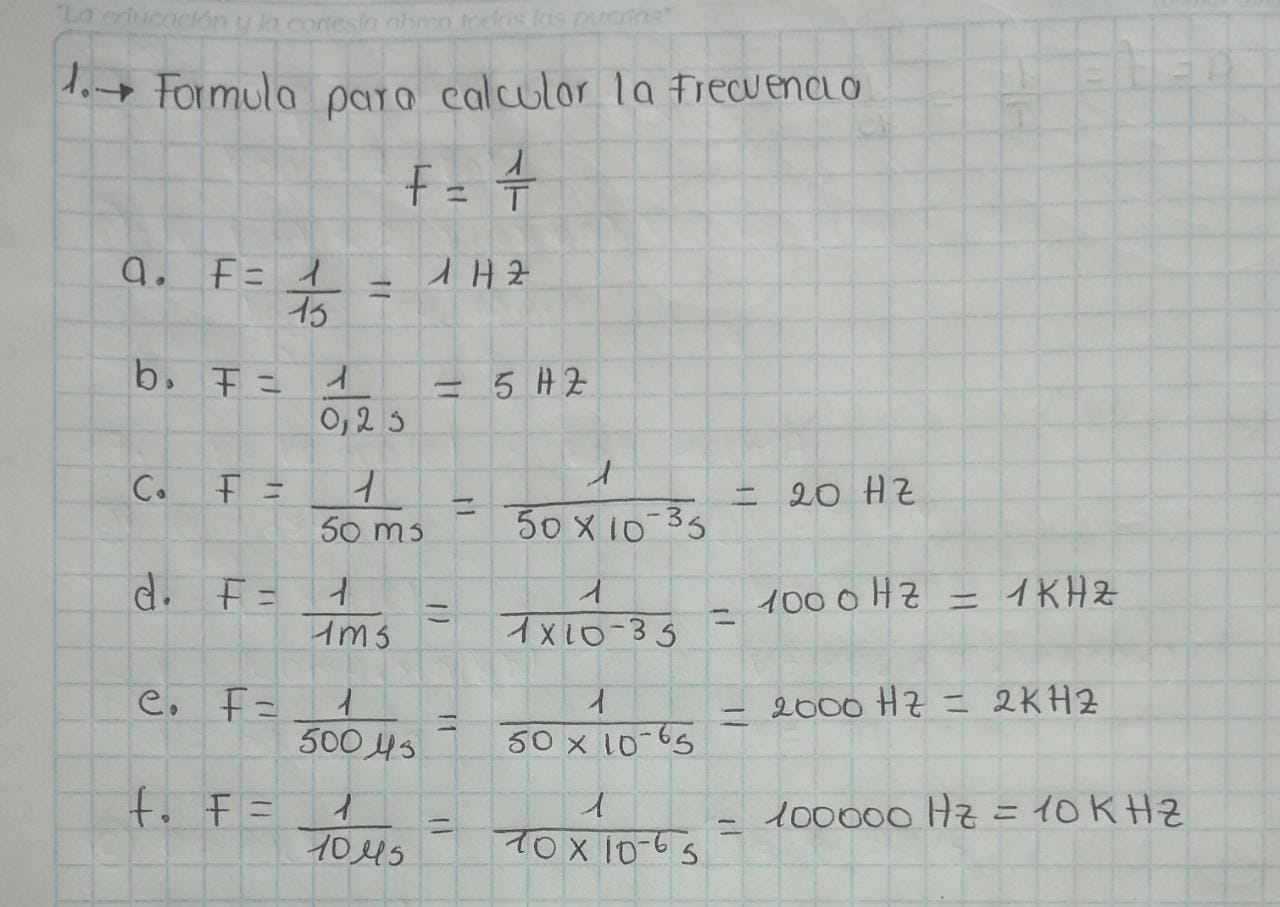 "La educación y la cortesía abren todas las puertas"
1. → Formula para calcular la Frecuencia
F = 1/T
a. F = 1/1s = 1 HZ
b. F = 1/0,2 s = 5 HZ
c. F = 1/50 ms = 1/50 x 10⁻³s = 20 HZ
d. F = 1/1ms = 1/1x10⁻³ s = 1000 HZ = 1KHZ
e. F = 1/500 μs = 1/50 x 10⁻⁶s = 2000 HZ = 2KHZ
f. F = 1/10 μs = 1/10 x 10⁻⁶ s = 100000 HZ = 10 KHZ